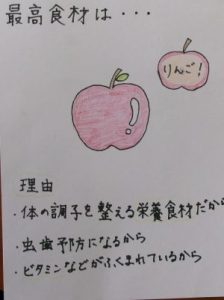 最高食材は・・・
りんご!
理由
・体の調子を整える栄養食材だから
・虫歯予防になるから
・ビタミンなどがふくまれているから